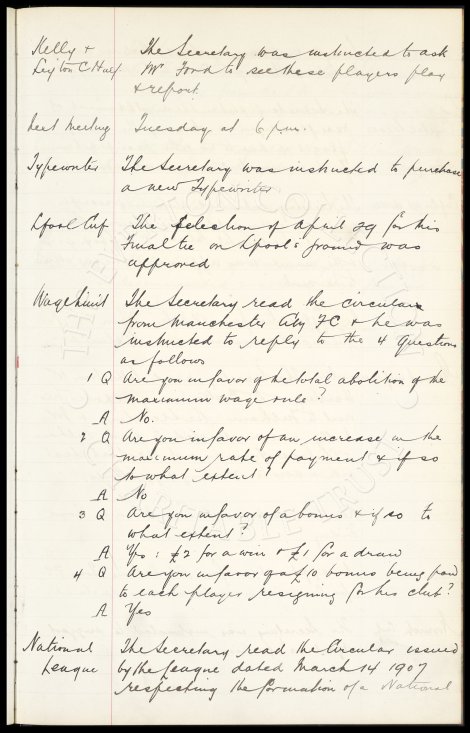 Kelly + The Secretary was instructed to ask
Leyton C. Half. Mr Ford to see these players play
& report.
Next Meeting Tuesday at 6 p.m.
Typewriter The Secretary was instructed to purchase
a new Typewriter
Lpool Cup The selection of April 29 for this
Final tie on Lpool's ground was
approved
Wage Limit The Secretary read the circular
from Manchester City FC & he was
instructed to reply to the 4 Questions
as follows
1 Q Are you in favor of the total abolition of the
maximum wage rule?
A No.
2 Q Are you in favor of an increase in the
maximum rate of payment & if so
to what extent?
A No
3 Q Are you in favor of a bonus & if so to
what extent?
A Yes: £2 for a win & £1 for a draw
4 Q Are you in favor of a £10 bonus being paid
to each player resigning for his club?
A Yes
National The Secretary read the Circular issued
League by the League dated March 14 1907
respecting the formation of a National